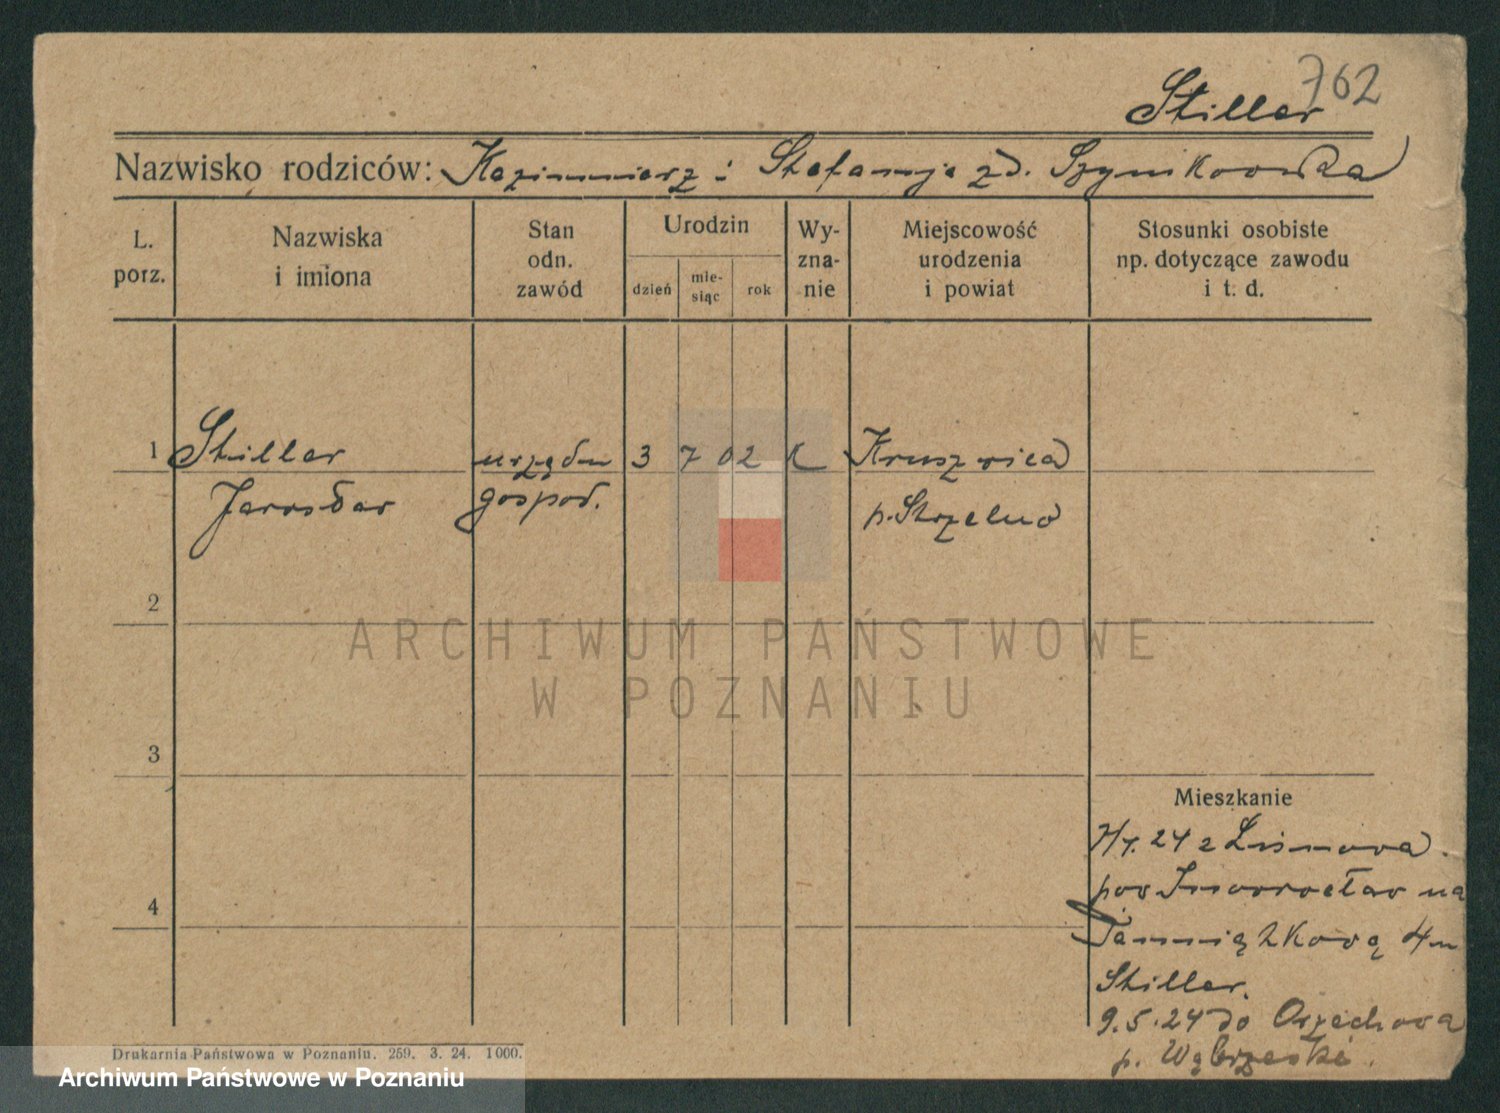 762
Stiller
Nazwisko rodziców: Kazimierz i Stefanja zd. Szymkowska
L. porz.
Nazwiska i imiona
Stan odn. zawód
Urodzin
dzień
mie-siąc
rok
Wy-zna-nie
Miejscowość urodzenia i powiat
Stosunki osobiste np. dotyczące zawodu i t. d.
1 Stiller urzędn 3 7 02 k Kruszwica
Jarosław gospod. p. Strzelno
2
ARCHIWUM PAŃSTWOWE
W POZNANIU
3
Mieszkanie
24 z
pow Inowrocław na
4
4 u
Stiller.
9.5.24 do Orzechowa
p. Wąbrzeski.
Drukarnia Państwowa w Poznaniu. 259. 3. 24. 1000.
Archiwum Państwowe w Poznaniu